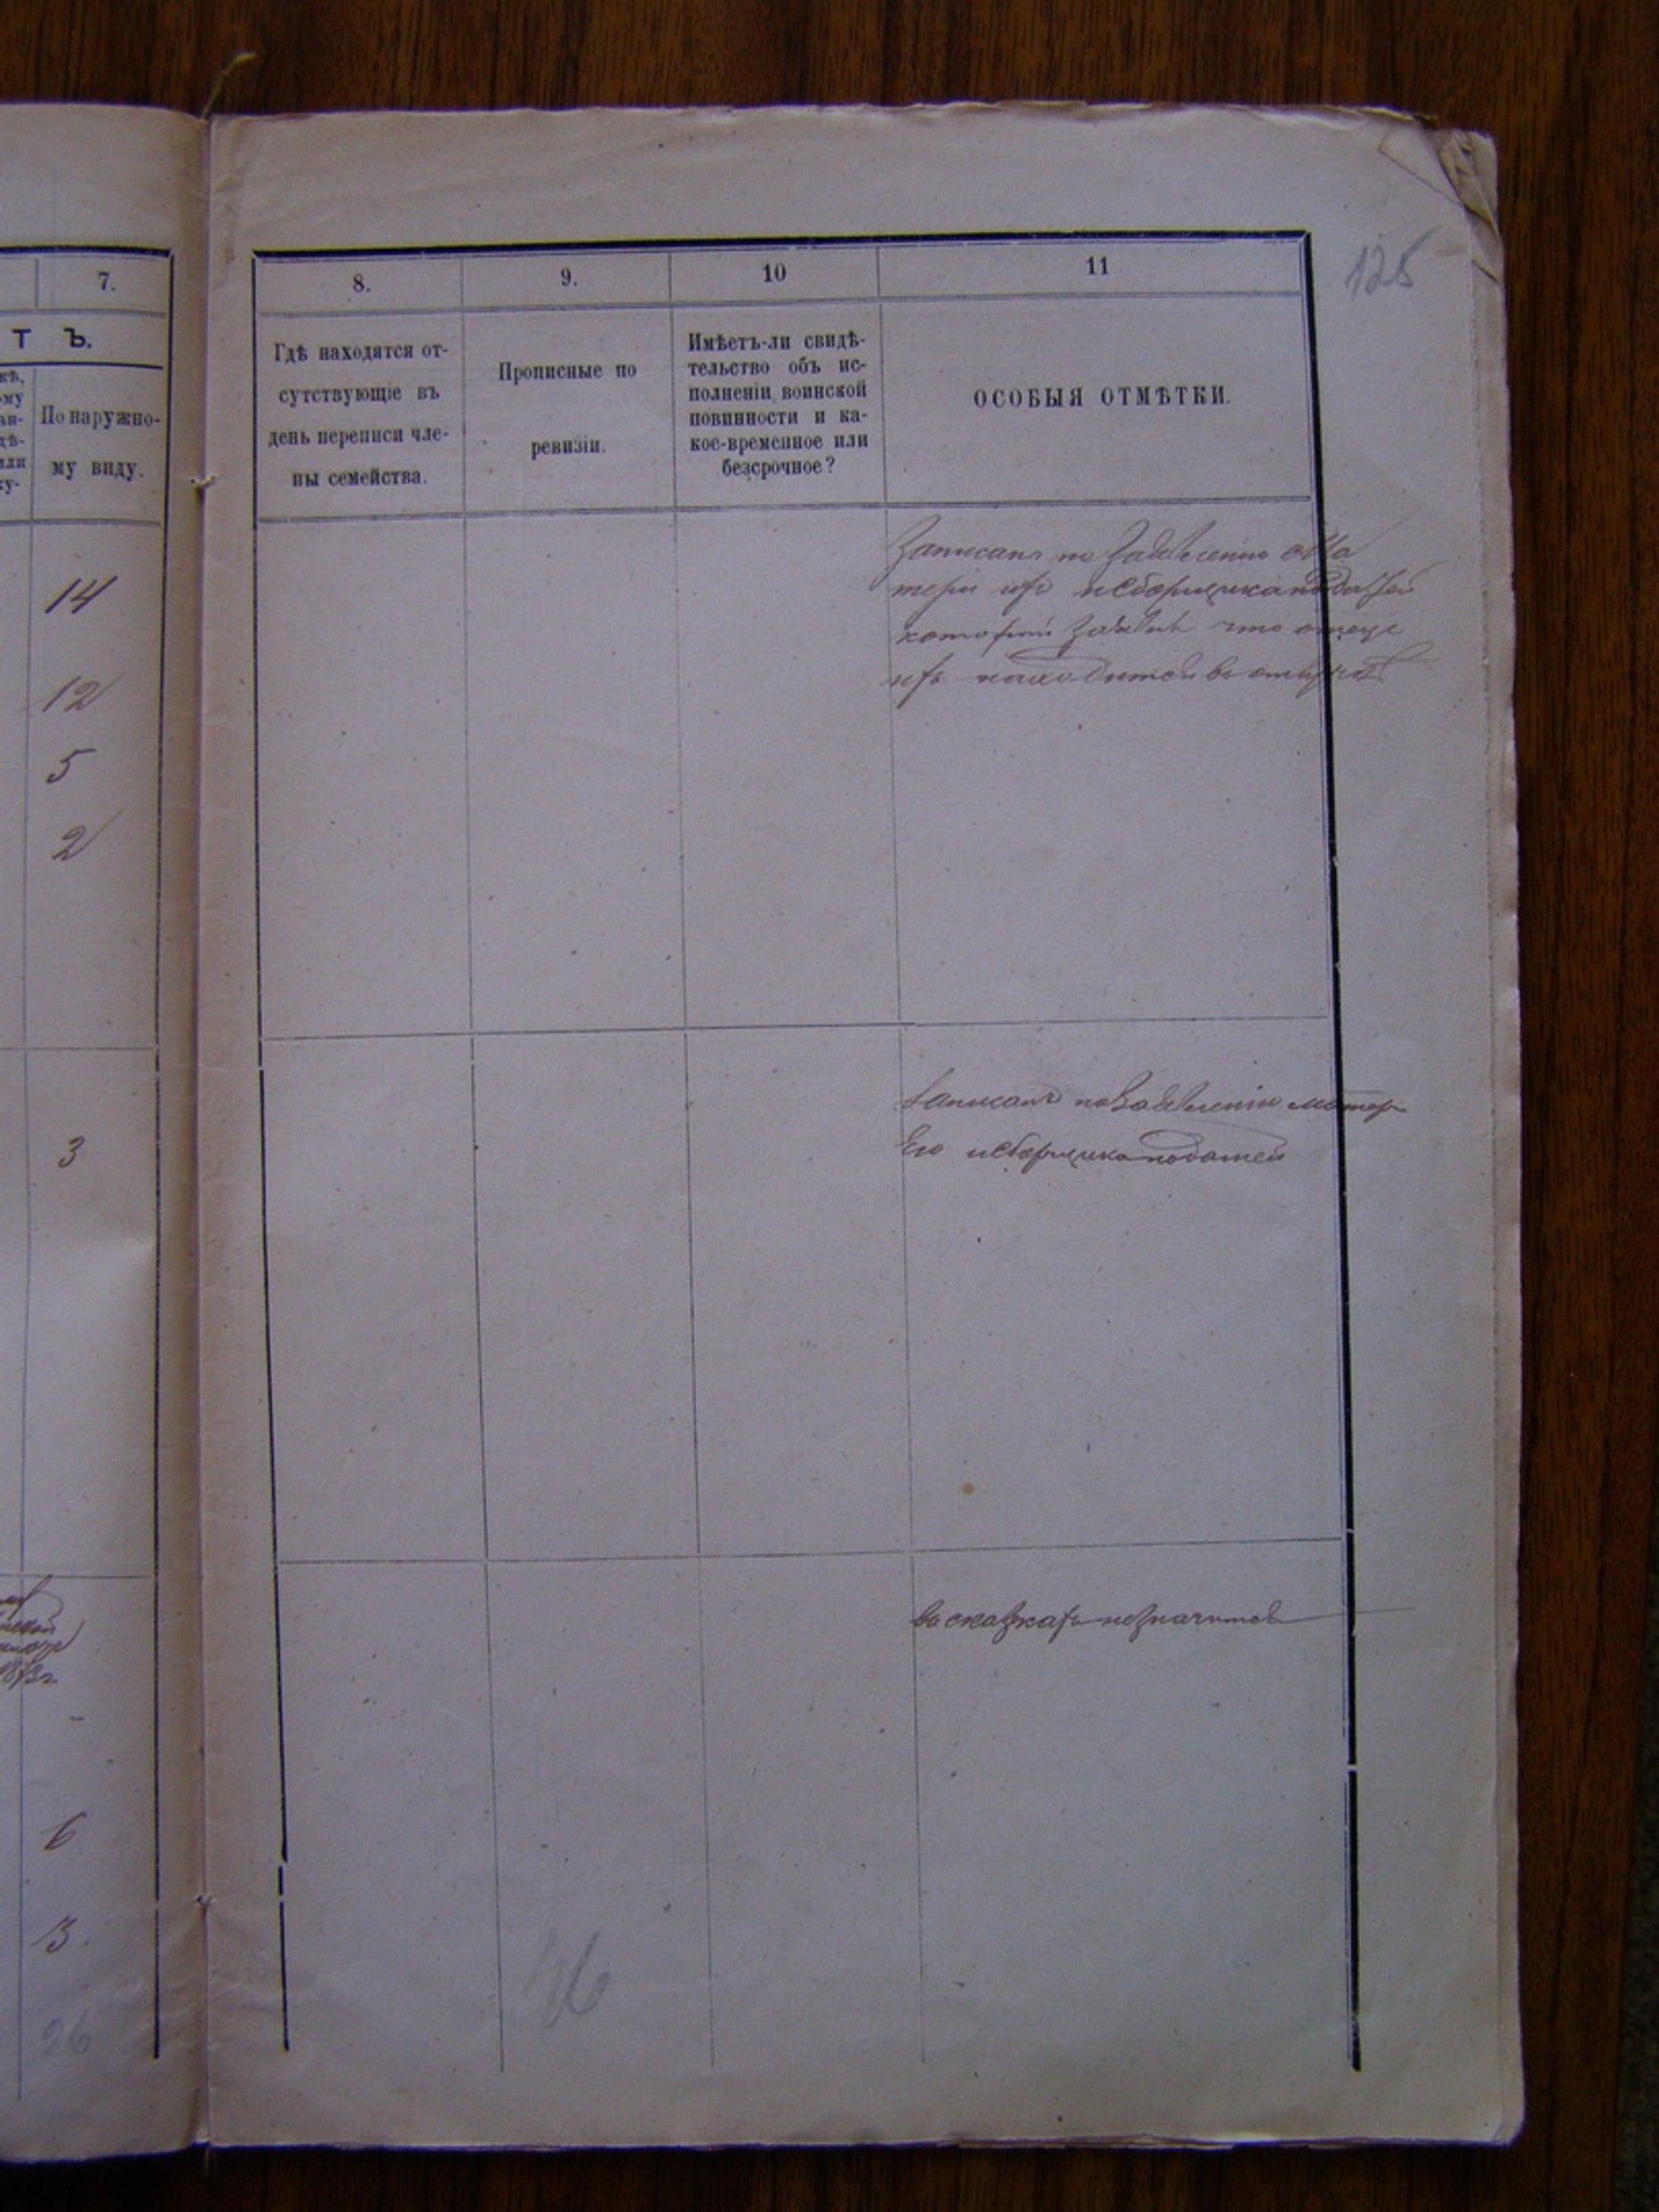 7.
Т Ъ.
По наружно-
му виду.
14
12
5
2
3
1873 г.
6
3
26
125
8.
9.
10
11
Гдѣ находятся от-
сутствующіе въ
день переписи чле-
ны семейства.
Прописные по
ревизіи.
Имѣетъ-ли свидѣ-
тельство объ ис-
полненіи воинской
повинности и ка-
кое-временное или
безсрочное?
ОСОБЫЯ ОТМѢТКИ.
Записаны по заявленію ма
тери ихъ и сборщика податей
который заявилъ что отецъ
ихъ находится въ
Записанъ по заявленію матери
Его и сборщика податей
въ сказкахъ незначится